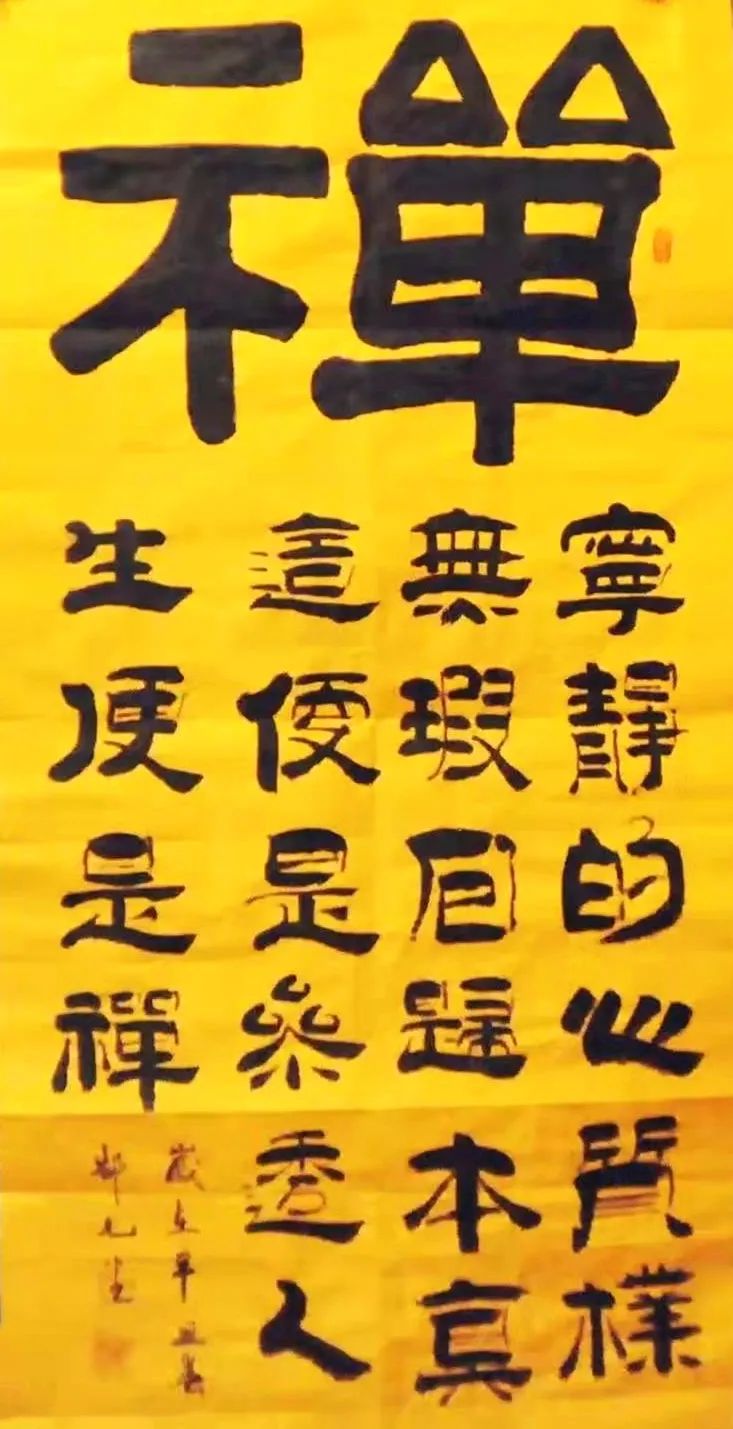 禪
寧靜的心質樸
無瑕回歸本真
這便是參透人
生便是禪
歲在辛丑